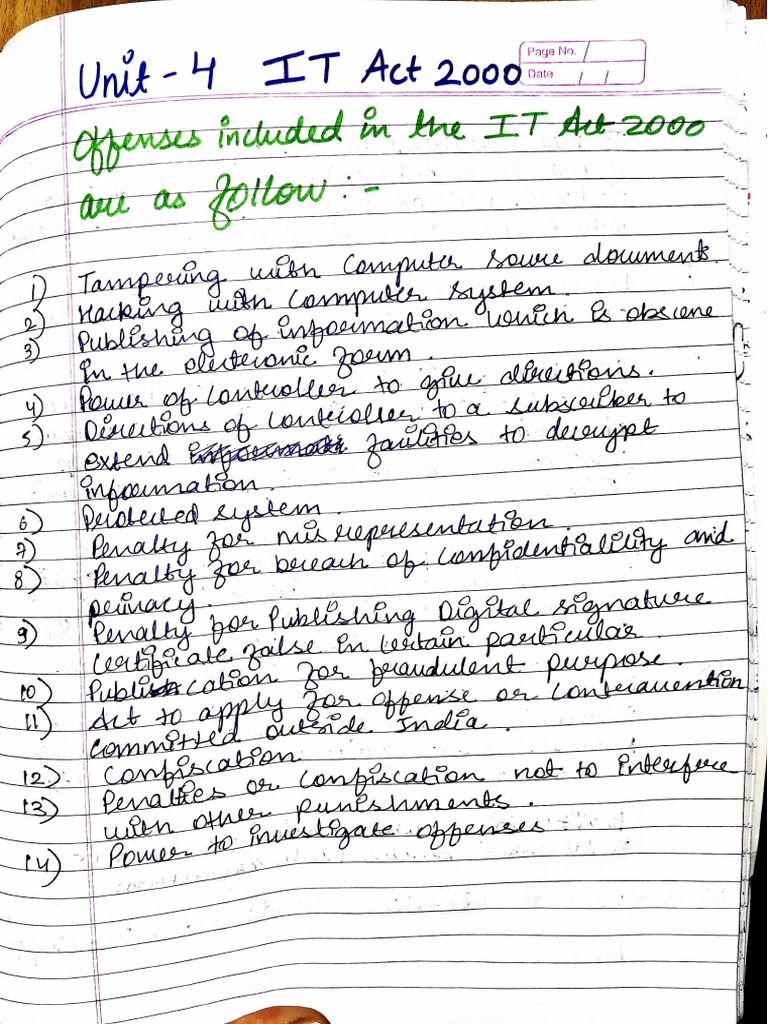 Page No.
Date / /
Unit - 4 IT Act 2000
Offenses included in the IT Act 2000
are as follow : -
1) Tampering with computer source documents.
2) Hacking with computer system.
3) Publishing of information which is obscene
in the electronic form.
4) Power of controller to give directions.
5) Directions of controller to a subscriber to
extend facilities to decrypt
information.
6) Protected system.
7) Penalty for misrepresentation.
8) Penalty for breach of confidentiality and
privacy.
9) Penalty for Publishing Digital signature
certificate false in certain particular
10) Publication for fraudulent purpose.
11) Act to apply for offense or contravention
committed outside India.
12) Confiscation
13) Penalties or confiscation not to interfere
with other punishments.
14) Power to investigate offenses